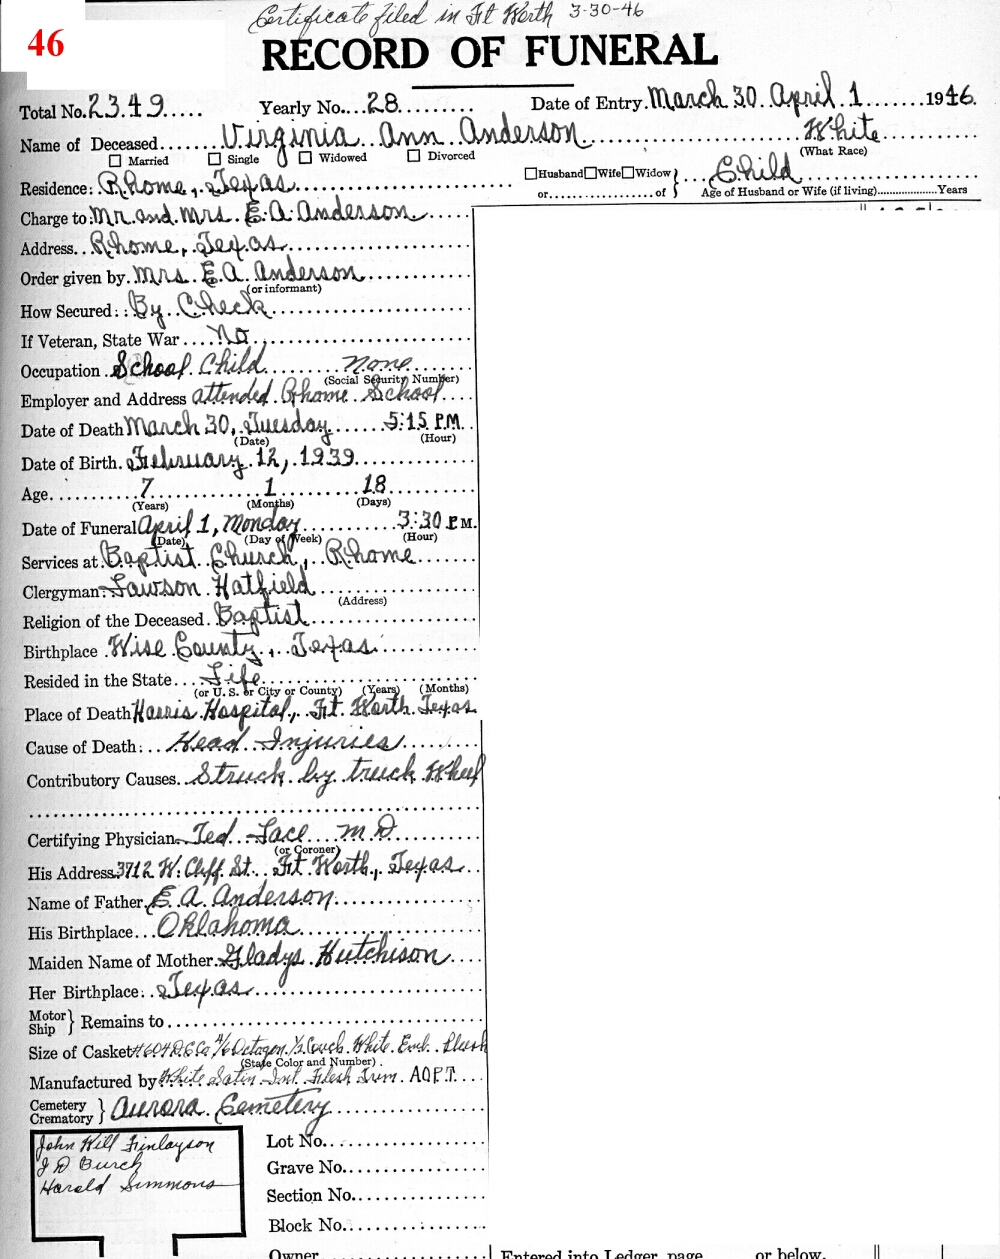 Certificate filed in Ft Worth 3-30-46
46
RECORD OF FUNERAL
Total No. 2349 Yearly No. 28 Date of Entry March 30 April 1 1946.
Name of Deceased Virginia Ann Anderson White
☐ Married ☐ Single ☐ Widowed ☐ Divorced (What Race)
Residence: Rhome, Texas ☐Husband☐Wife☐Widow} Child
or of Age of Husband or Wife (if living) Years
Charge to Mr. and Mrs. E. A. Anderson
Address Rhome, Texas
Order given by Mrs. E. A. Anderson
(or informant)
How Secured: By Check
If Veteran, State War No
Occupation School Child None
(Social Security Number)
Employer and Address attended Rhome School
Date of Death March 30, Tuesday 5:15 P.M.
(Date) (Hour)
Date of Birth February 12, 1939
Age 7 1 18
(Years) (Months) (Days)
Date of Funeral April 1, Monday 3:30 P.M.
(Date) (Day of Week) (Hour)
Services at Baptist Church, Rhome
Clergyman Lawson Hatfield
(Address)
Religion of the Deceased Baptist
Birthplace Wise County, Texas
Resided in the State Life
(or U. S. or City or County) (Years) (Months)
Place of Death Harris Hospital, Ft. Worth Texas
Cause of Death: Head Injuries
Contributory Causes Struck by truck Wheel
Certifying Physician Ted M D
(or Coroner)
His Address 3712 W. Cliff St. Ft Worth, Texas
Name of Father E. A. Anderson
His Birthplace Oklahoma
Maiden Name of Mother Gladys Hutchison
Her Birthplace: Texas
Motor
Ship } Remains to
Size of Casket 4/6 Octagon ½ Couch White Emb. Plush
(State Color and Number)
Manufactured by White Satin Int. Flesh Trim.
Cemetery
Crematory } Aurora Cemetery
John Will Finlayson
J D Burch
Harold Simmons
Lot No.
Grave No.
Section No.
Block No.
Owner Entered into Ledger, page or below.